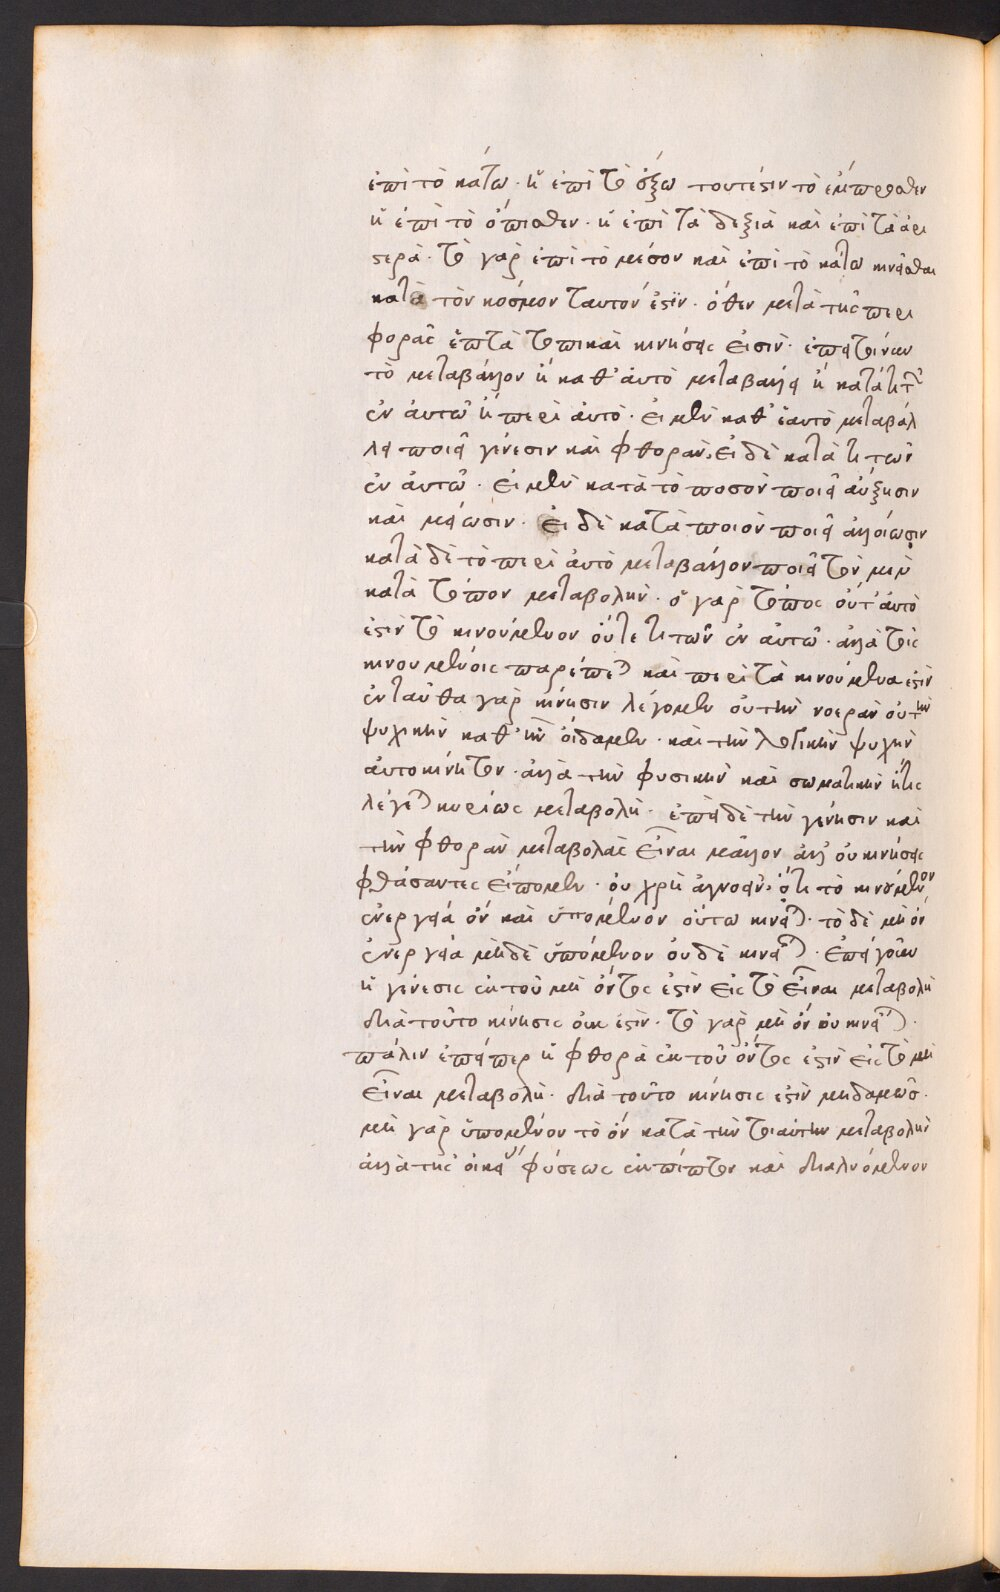 ἐπὶ τὸ κάτω· ἢ ἐπὶ τὸ ἔξω τουτέστιν τὸ ἔμπροσθεν
ἢ ἐπὶ τὸ ὄπισθεν· ἢ ἐπὶ τὰ δεξιὰ καὶ ἐπὶ τὰ ἀρι
στερά· τὸ γὰρ ἐπὶ τὸ μέσον καὶ ἐπὶ τὸ κάτω κινεῖσθαι
κατὰ τὸν κόσμον ταυτόν ἐστϊν· ὅθεν μετὰ τῆς περι
φορᾶς ἑπτὰ τοπικαὶ κινήσεις εἰσὶν· ἐπεὶ τοίνυν
τὸ μεταβάλλον ἢ καθ' αὑτὸ μεταβάλλει ἢ κατά τι τῶν
ἐν αὐτῶ ἢ περὶ αὐτό· εἰ μὲν καθ' ἑαυτὸ μεταβάλ
λει ποιεῖ γένεσιν καὶ φθοράν· εἰ δὲ κατά τι τῶν
ἐν αὐτῶ· εἰ μὲν κατὰ τὸ ποσὸν ποιεῖ αὔξησιν
καὶ μείωσιν· εἰ δὲ κατὰ ποιὸν ποιεῖ ἀλλοίωσιν
κατὰ δὲ τὸ περὶ αὐτὸ μεταβάλλον ποιεῖ τὴν
κατὰ τόπον μεταβολήν· ὁ γὰρ τόπος οὔτ' αὐτό
ἐστιν τὸ κινούμενον οὔτε τι τῶν ἐν αὐτῶ· ἀλλὰ τοῖς
κινουμένοις παρέπεται καὶ περὶ τὰ κινούμενα ἐστὶν
ἐνταῦθα γὰρ κίνησιν λέγομεν οὐ τὴν νοερὰν οὐ τὴν
ψυχικὴν καθ' ἣν οἴδαμεν· καὶ τὴν λογικὴν ψυχὴν
αὐτοκίνητον· ἀλλὰ τὴν φυσικὴν καὶ σωματικὴν ἥτις
λέγεται κυρίως μεταβολή· ἐπεὶ δὲ τὴν γένησιν καὶ
τὴν φθορὰν μεταβολὰς εἶναι μᾶλλον ἀλλ' οὐ κινήσεις
φθάσαντες εἴπομεν· οὐ χρὴ ἀγνοεῖν· ὅτι τὸ κινούμενον
ἐνεργεία ὂν καὶ ὑπομένον οὕτω κινεῖται· τὸ δὲ μὴ ὂν
ἐνεργεία μηδὲ ὑπομένον οὐδὲ κινεῖται· ἐπεὶ γοῦν
ἡ γένεσις ἐκ τοῦ μὴ ὄντος ἐστὶν εἰς τὸ εἶναι μεταβολὴ
διὰ τοῦτο κίνησις οὐκ ἐστιν· τὸ γὰρ μὴ ὂν οὐ κινεῖται·
πάλιν ἐπείπερ ἡ φθορὰ ἐκ τοῦ ὄντος ἐστὶν εἰς τὸ μὴ
εἶναι μεταβολή· διὰ τοῦτο κίνησις ἐστὶν μηδαμῶς·
μὴ γὰρ ὑπομένον τὸ ὂν κατὰ τὴν τοιαύτην μεταβολὴν
ἀλλὰ τῆς οἰκείας φύσεως ἐκπίπτον καὶ διαλυόμενον